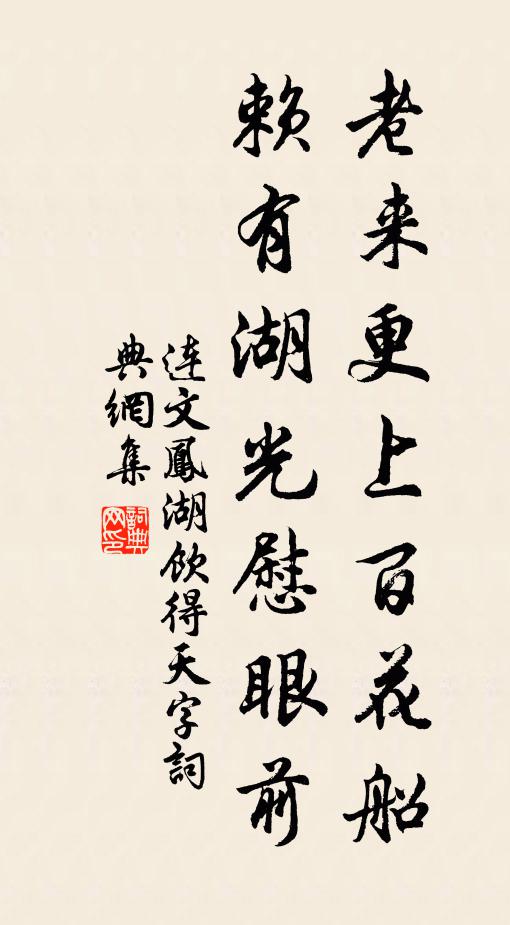 老来更上百花船
赖有湖光慰眼前
連文鳳湖飲得天字詞
典網集
詞典网印